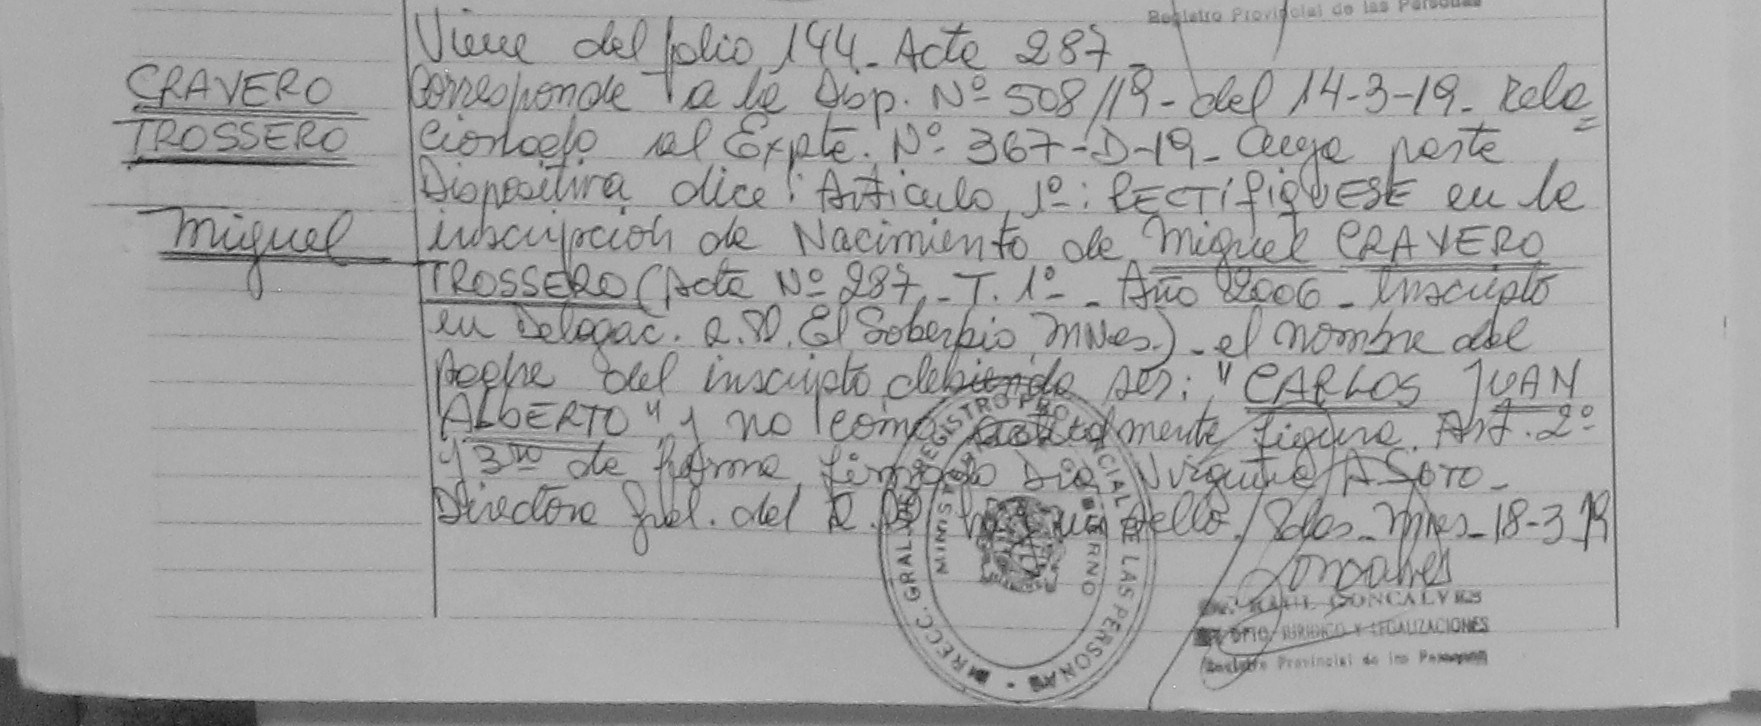 Registro Provincial de las Personas
Viene del folio 144 - Acte 287 -
CRAVERO
TROSSERO
Miguel
Corresponde a la Disp. Nº 508/19 - del 14-3-19 - Rela=
cionado al Expte. Nº 367-D-19 - Cuya parte
Dispositiva dice: Artículo 1º: RECTIFIQUESE en la
inscripción de Nacimiento de Miguel CRAVERO
TROSSERO (Acta Nº 287 - T. 1º - Año 2006 - Inscripto
en Delegac. El Soberbio Mnes.) - el nombre del
padre del inscripto, debiendo ser: "CARLOS JUAN
ALBERTO" y no como actualmente figura. Art. 2º
y 3ro de forma, firmado Dra. A SOTO -
Directora Gral. del sello. Pdas - Mnes - 18-3-19
Gonsalves
RAUL GONCALVES
DPTO. JURIDICO Y LEGALIZACIONES
Registro Provincial de las Personas
DIRECC. GRAL. DEL REGISTRO PROVINCIAL DE LAS PERSONAS
MINISTERIO DE GOBIERNO